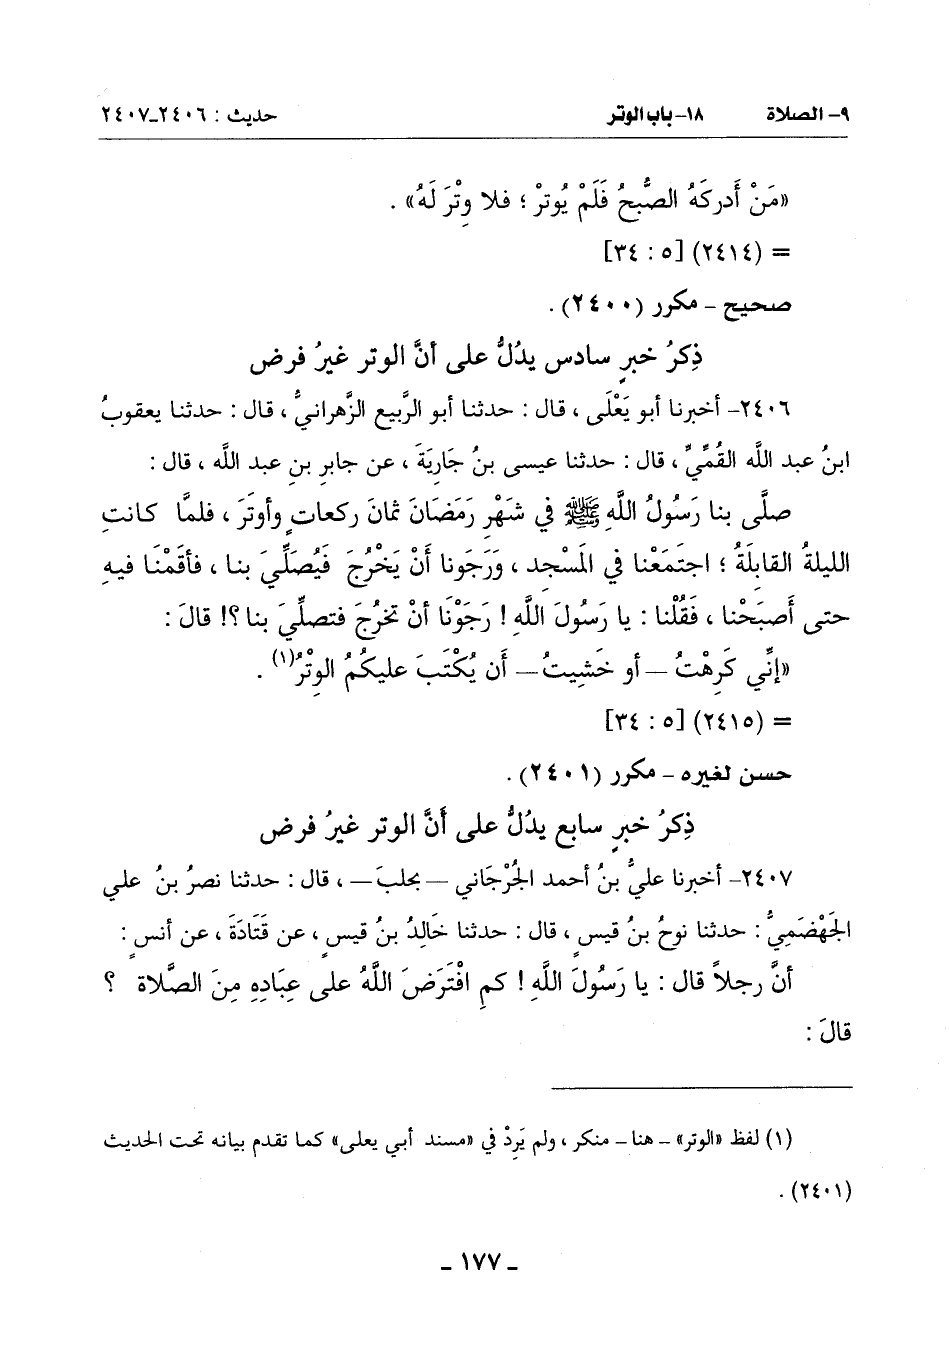 ٩- الصلاة ١٨- باب الوتر حديث : ٢٤٠٦-٢٤٠٧
«مَنْ أَدركَهُ الصُّبحُ فَلَمْ يُوتِرْ ؛ فلا وِتْرَ لَهُ» .
= (٢٤١٤) [٥ : ٣٤]
صحيح - مكرر (٢٤٠٠) .
ذِكرُ خبرٍ سادس يدُلُّ على أنَّ الوتر غيرُ فرض
٢٤٠٦- أخبرنا أبو يَعْلَى ، قال : حدثنا أبو الرَّبيع الزَّهرانيُّ ، قال : حدثنا يعقوبُ
ابنُ عبد اللَّه القُمِّيُّ ، قال : حدثنا عيسى بنُ جَارِيَةَ ، عن جابرِ بنِ عبد اللَّه ، قال :
صلَّى بنا رَسُولُ اللَّهِ ﷺ في شَهْرِ رَمَضَانَ ثمانَ ركعاتٍ وأوتَرَ ، فلمَّا كانتِ
الليلةُ القابلَةُ ؛ اجتَمَعْنا في المَسْجدِ ، وَرَجَونا أَنْ يَخْرُجَ فَيُصَلِّيَ بنا ، فأقَمْنَا فيهِ
حتى أَصبَحْنا ، فَقُلْنا : يا رَسُولَ اللَّهِ ! رَجَوْنَا أنْ تخرُجَ فتصلِّيَ بنا ؟! قالَ :
«إنِّي كَرِهْتُ — أو خَشِيتُ — أَن يُكْتَبَ عليكُمُ الوِتْرُ(١) .
= (٢٤١٥) [٥ : ٣٤]
حسن لغيره - مكرر (٢٤٠١) .
ذِكرُ خبرٍ سابع يدُلُّ على أَنَّ الوتر غيرُ فرض
٢٤٠٧- أخبرنا عليُّ بنُ أحمد الجُرْجَاني — بحلبَ — ، قال : حدثنا نصرُ بنُ علي
الجَهْضَمِيُّ : حدثنا نوحُ بنُ قيسٍ ، قال : حدثنا خَالِدُ بنُ قيسٍ ، عن قَتَادَةَ ، عن أنسٍ :
أنَّ رجلاً قال : يا رَسُولَ اللَّهِ ! كمِ افْتَرَضَ اللَّهُ على عِبَادِهِ مِنَ الصَّلاة ؟
قالَ :
(١) لفظ «الوتر» - هنا - منكر ، ولم يَرِدْ في «مسند أبي يعلى» كما تقدم بيانه تحت الحديث
(٢٤٠١) .
- ١٧٧ -